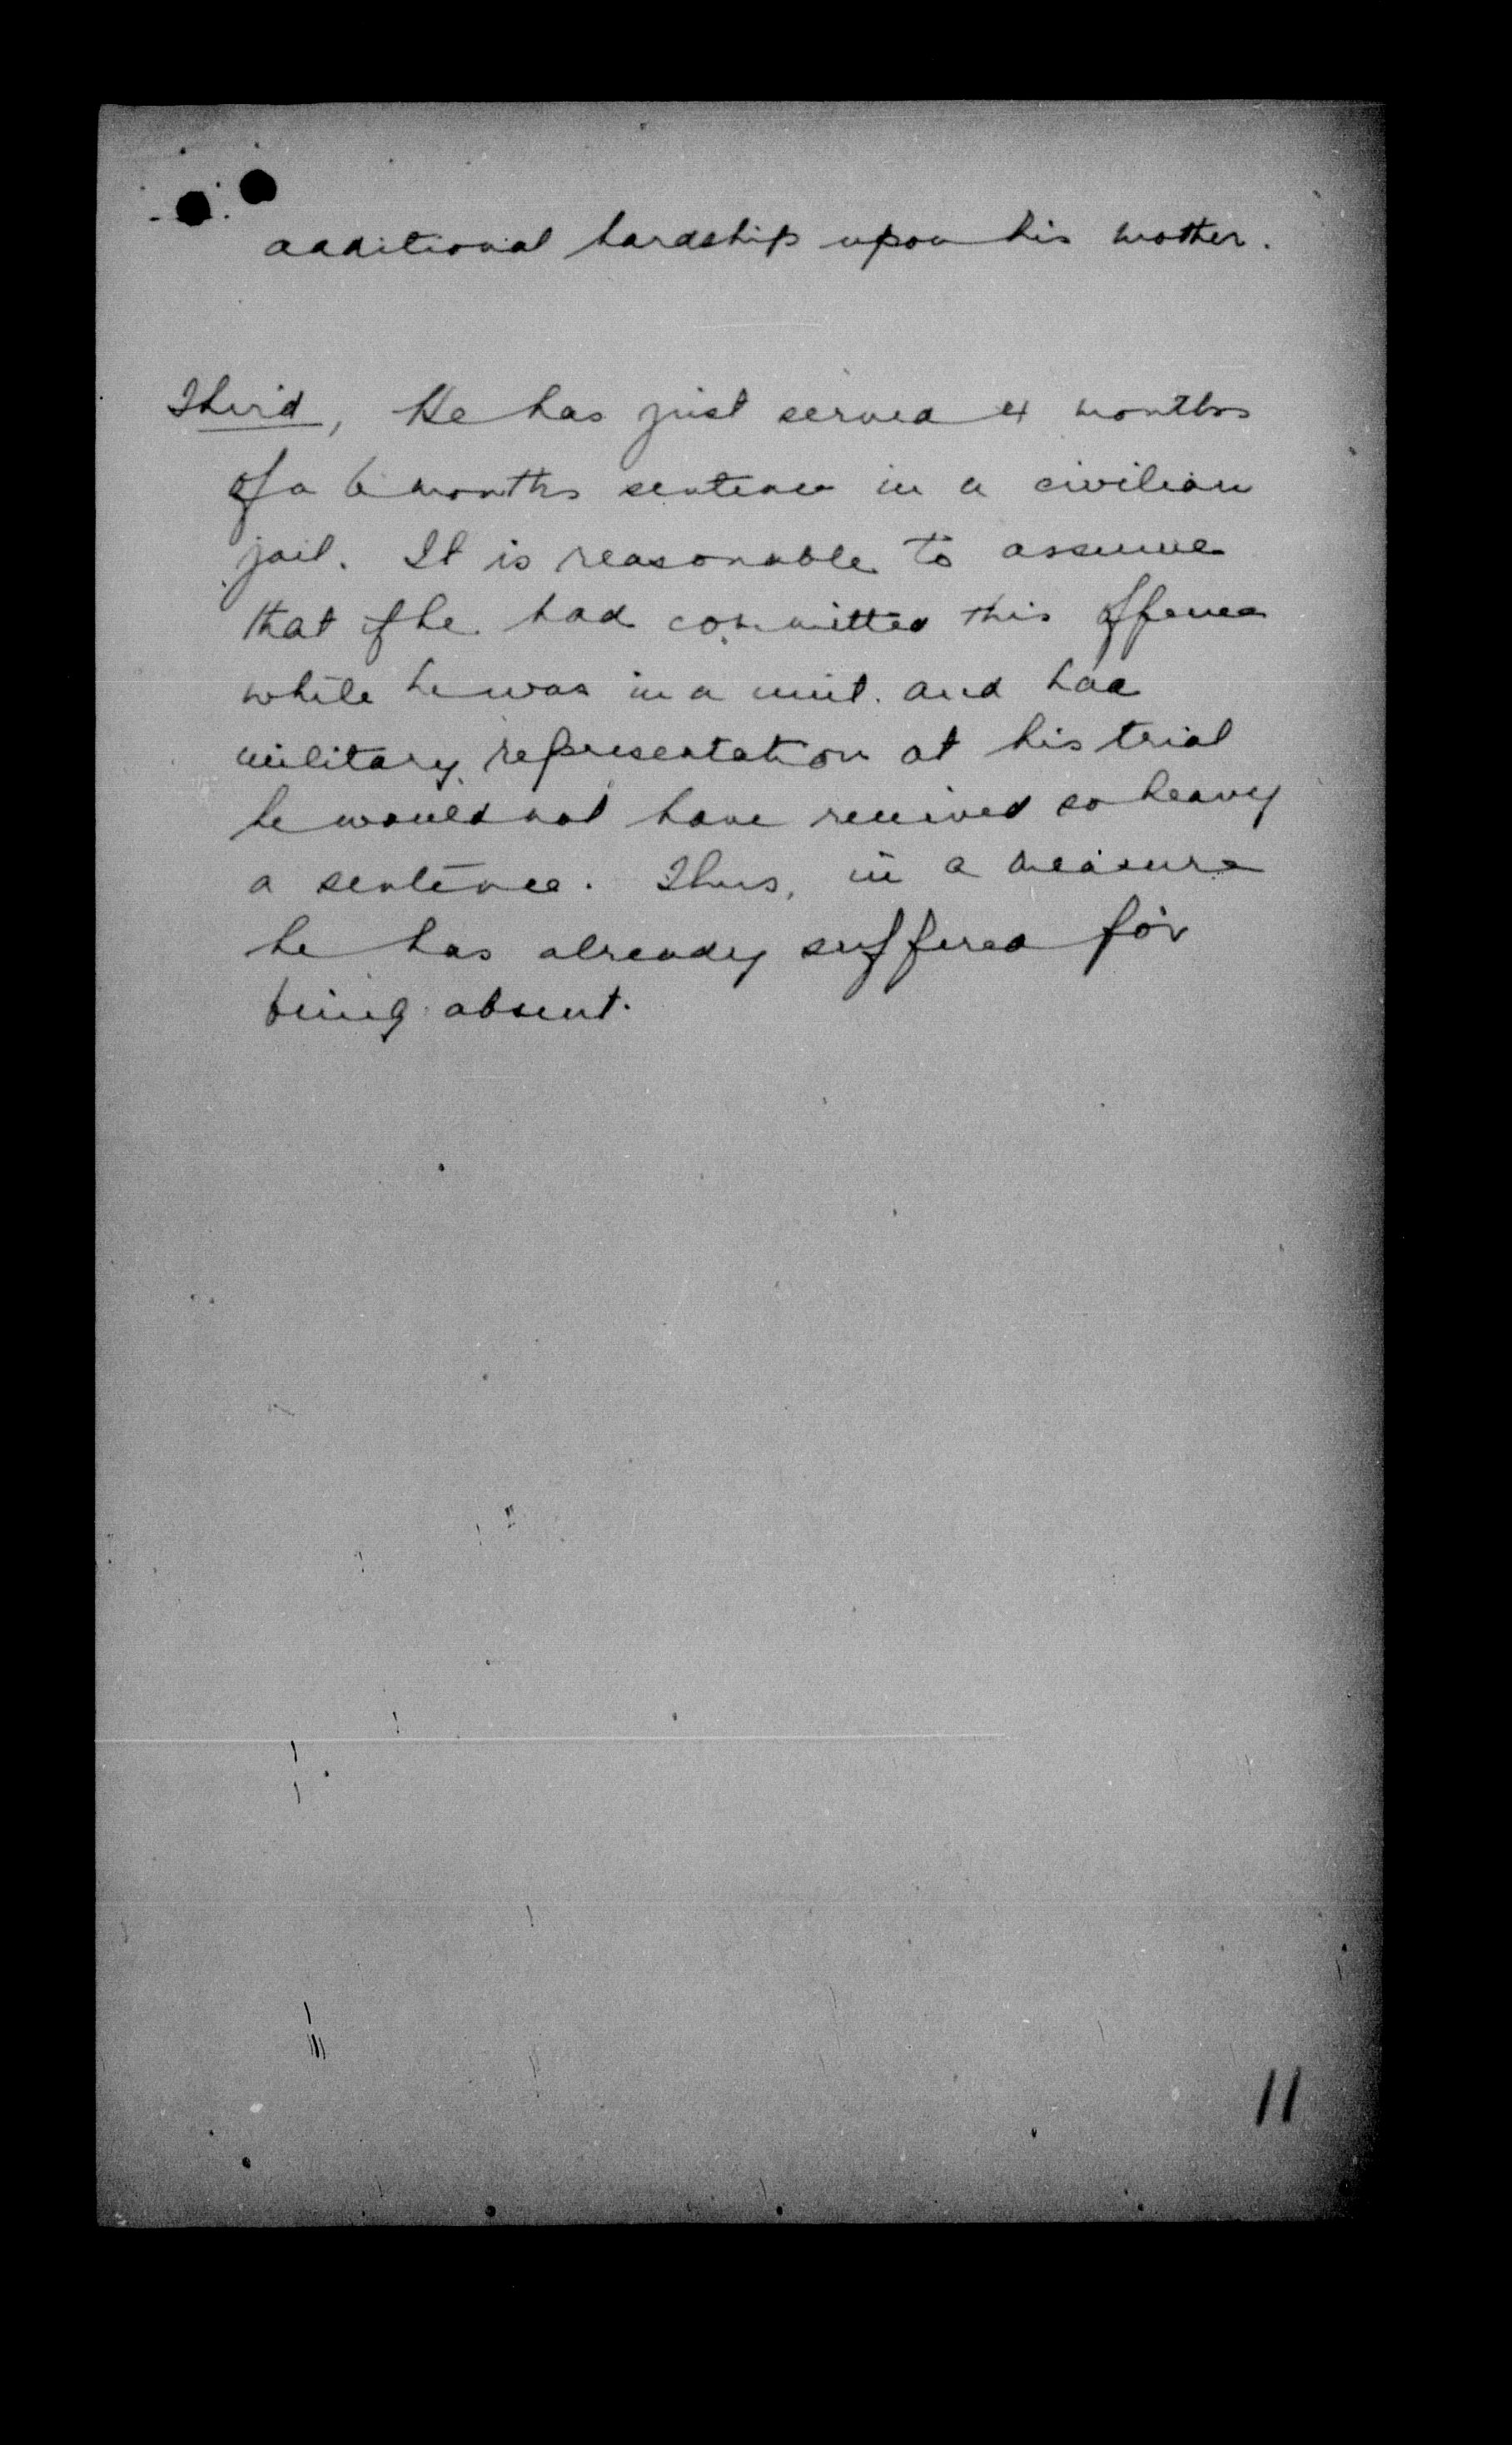 additional hardship upon his mother.
Third, He has just served 4 months
of a 6 months sentence in a civilian
jail. It is reasonable to assume
that if he had committed this offence
while he was in a unit. and had
military representation at his trial
he would not have received so heavy
a sentence. Thus, in a measure
he has already suffered for
being absent.
11